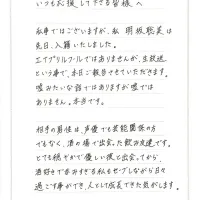 いつも応援して下さる皆様へ
私事ではございますが、私 明坂聡美は
先日、入籍いたしました。
エイプリルフールではありませんが、生放送
という事で、本日ご報告させていただきます。
嘘みたいな話ではありますが嘘では
ありません。本当です。
相手の男性は、声優でも芸能関係の方
でもなく、酒の場で出会った飲み友達です。
とても穏やかで優しい彼と出会ってから、
酒好きで呑みすぎる私もセーブしながら日々
過ごす事ができ、人として成長できた気がします。